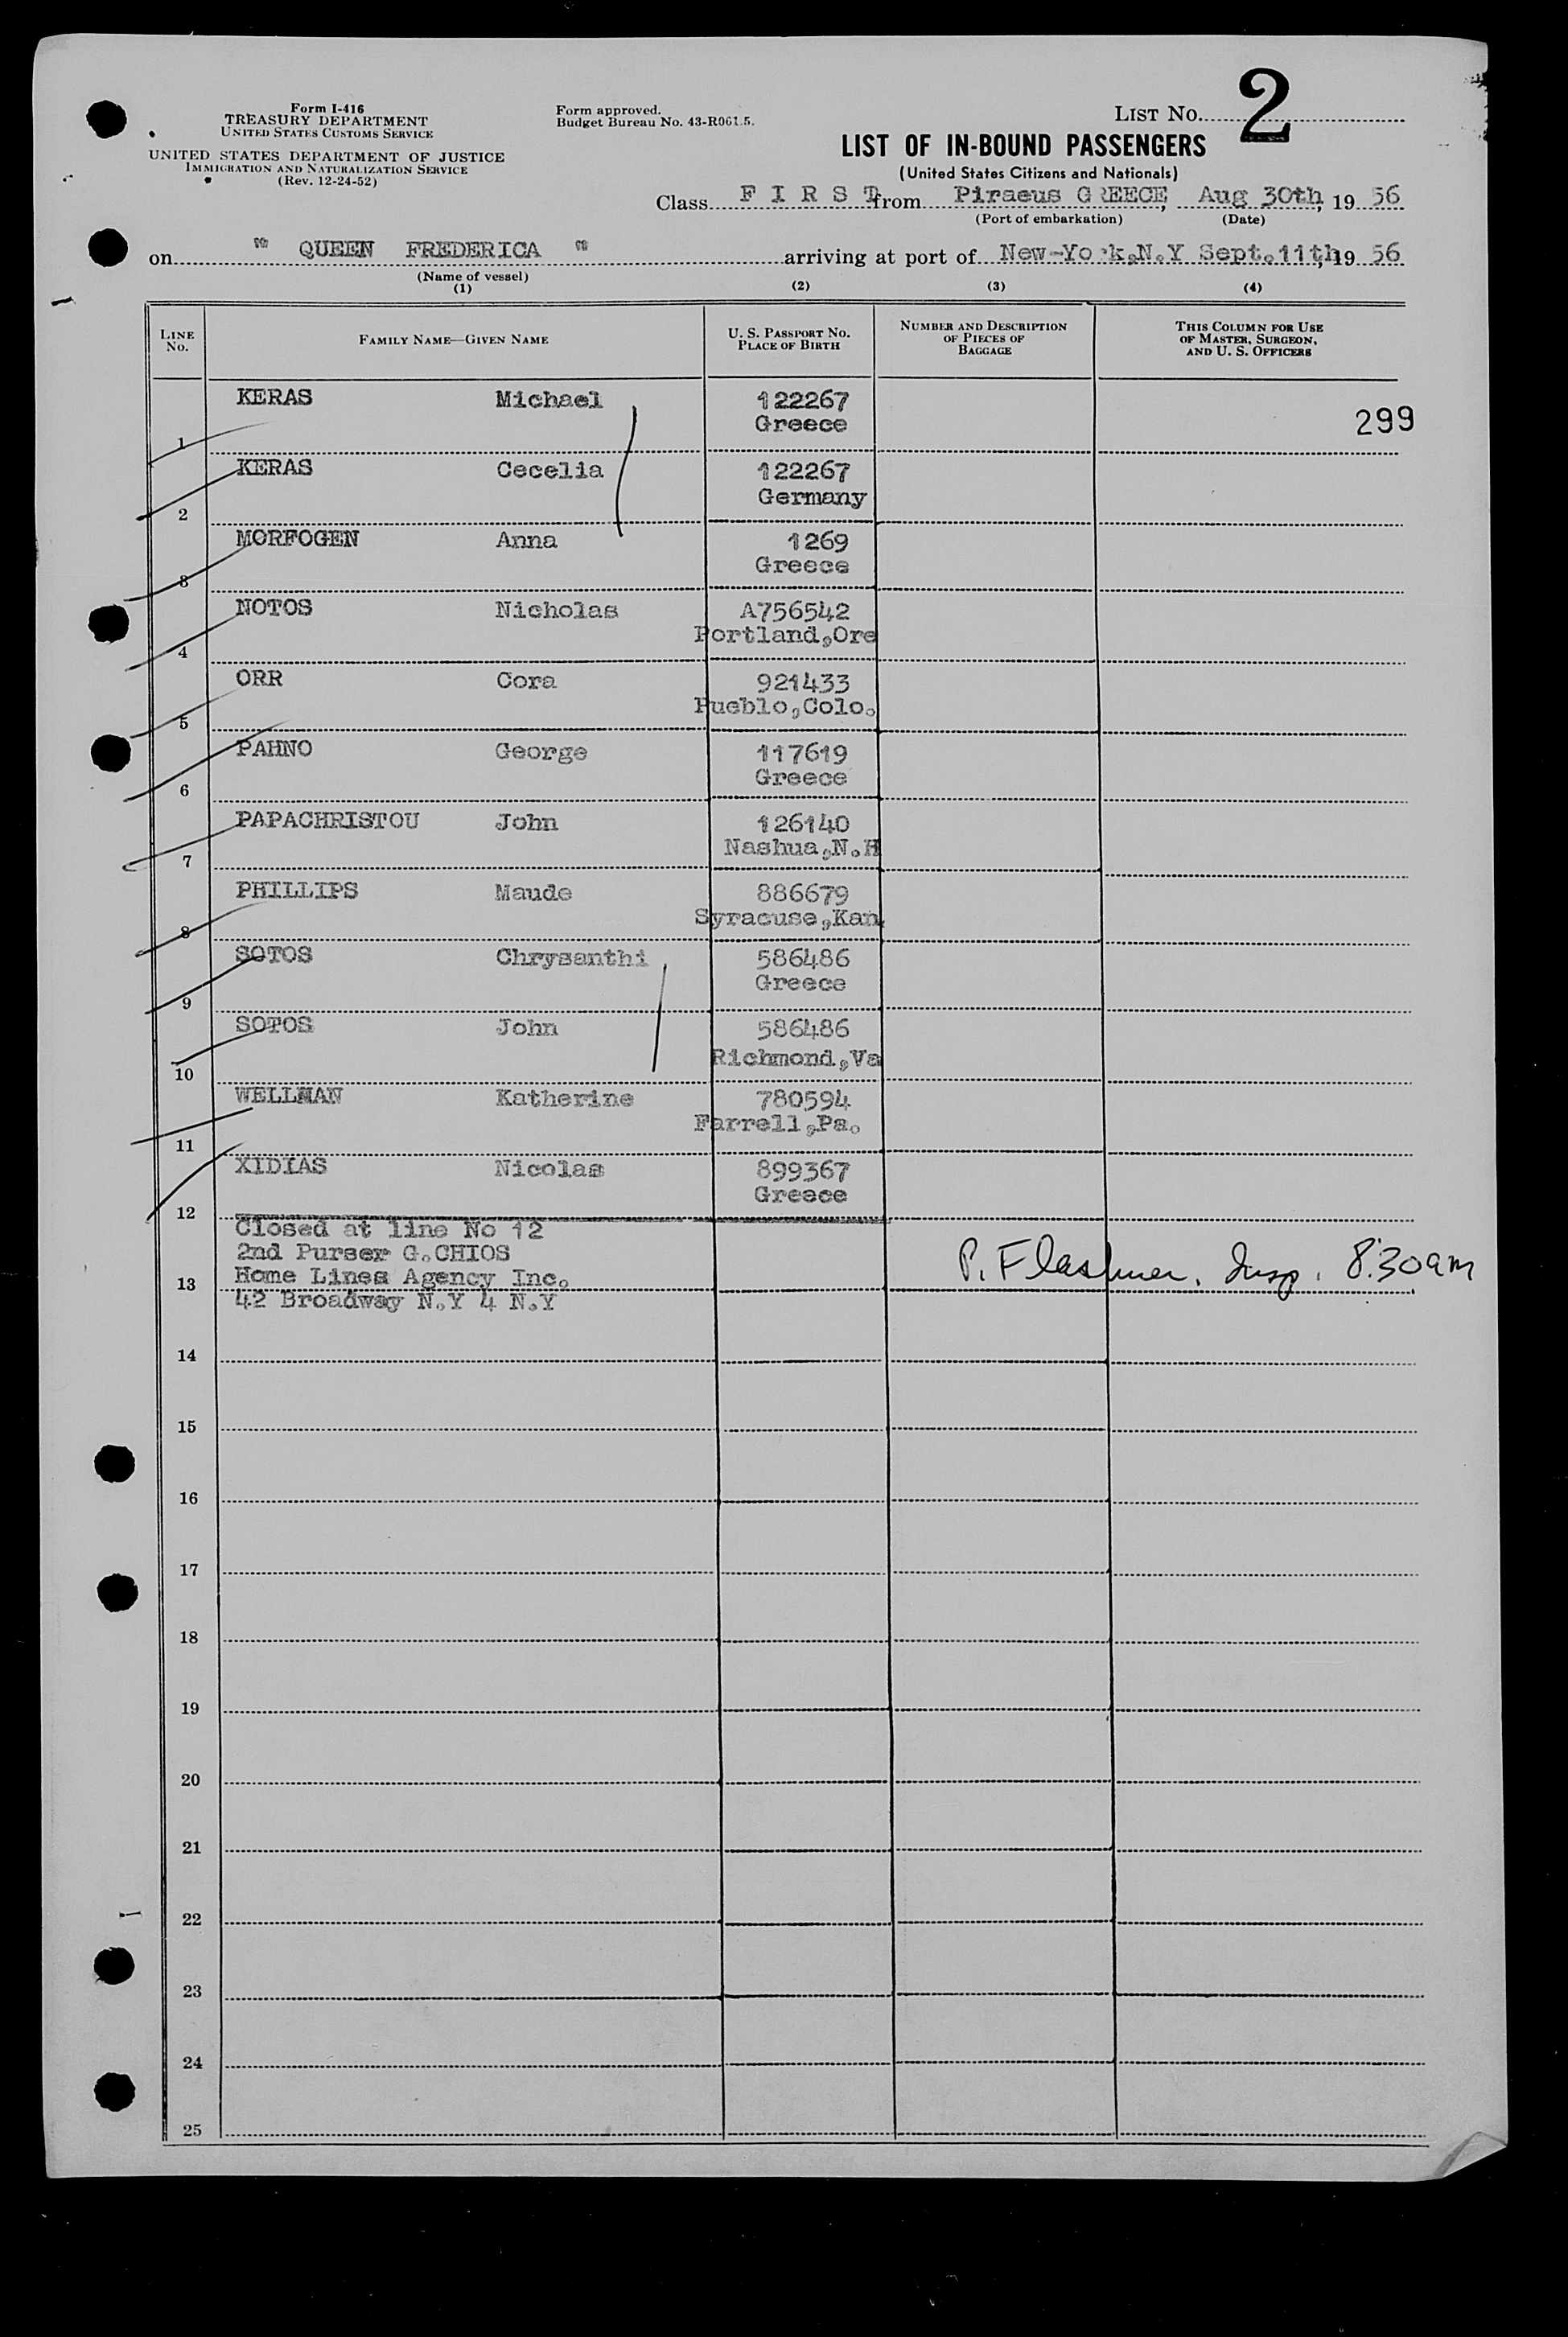 Form I-416
TREASURY DEPARTMENT
UNITED STATES CUSTOMS SERVICE
UNITED STATES DEPARTMENT OF JUSTICE
IMMIGRATION AND NATURALIZATION SERVICE
(Rev. 12-24-52)
Form approved.
Budget Bureau No. 43-R061.5.
LIST NO. 2
LIST OF IN-BOUND PASSENGERS
(United States Citizens and Nationals)
Class F I R S T from Piraeus GREECE, Aug 30th, 19 56
(Port of embarkation) (Date)
on " QUEEN FREDERICA " arriving at port of New-York,N.Y Sept.11th, 19 56
(Name of vessel)
(1) (2) (3) (4)
LINE NO. FAMILY NAME—GIVEN NAME U. S. PASSPORT NO. PLACE OF BIRTH NUMBER AND DESCRIPTION OF PIECES OF BAGGAGE THIS COLUMN FOR USE OF MASTER, SURGEON, AND U. S. OFFICERS
1 KERAS Michael 122267 299
Greece
2 KERAS Cecelia 122267
Germany
3 MORFOGEN Anna 1269
Greece
4 NOTOS Nicholas A756542
Portland,Ore
5 ORR Cora 921433
Pueblo,Colo.
6 PAHNO George 117619
Greece
7 PAPACHRISTOU John 126140
Nashua,N.H
8 PHILLIPS Maude 886679
Syracuse,Kan.
9 SOTOS Chrysanthi 586486
Greece
10 SOTOS John 586486
Richmond,Va
11 WELLMAN Katherine 780594
Farrell,Pa.
12 XIDIAS Nicolas 899367
Greece
Closed at line No 12
2nd Purser G.CHIOS
Home Lines Agency Inc.
13 P. Flashner, Insp. 8:30am
42 Broadway N.Y 4 N.Y
14
15
16
17
18
19
20
21
22
23
24
25